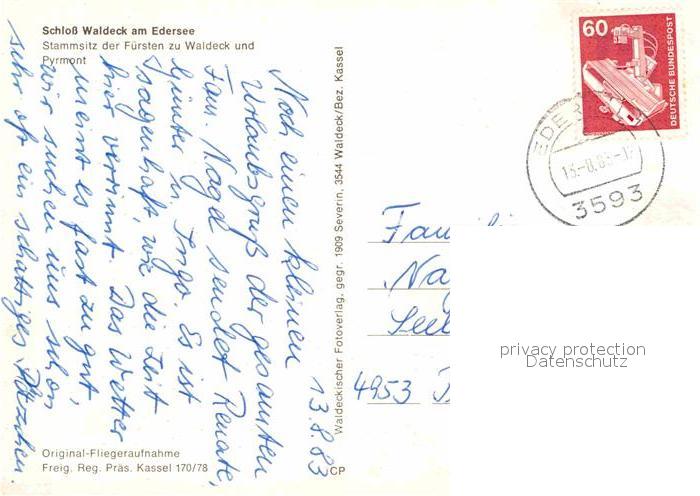 Schloß Waldeck am Edersee
Stammsitz der Fürsten zu Waldeck und
Pyrmont
13.8.83
Noch einen kleinen
Urlaubsgruß der gesamten
Fam. Nagel sendet Renate,
Günter u. Ingo. Es ist
sagenhaft wie die Zeit
hier verrinnt. Das Wetter
meint es fast zu gut
wir suchen uns schon
sehr oft ein schattiges Plätzchen
Original-Fliegeraufnahme
Freig. Reg. Präs. Kassel 170/78
CP
Waldeckischer Fotoverlag, gegr. 1909 Severin, 3544 Waldeck/Bez. Kassel
60
DEUTSCHE BUNDESPOST
EDER
3593
Fam
Na
4953
privacy protection
Datenschutz